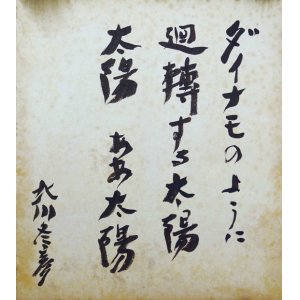 ダイナモのように
廻轉する太陽
太陽 ああ太陽
北川冬彦